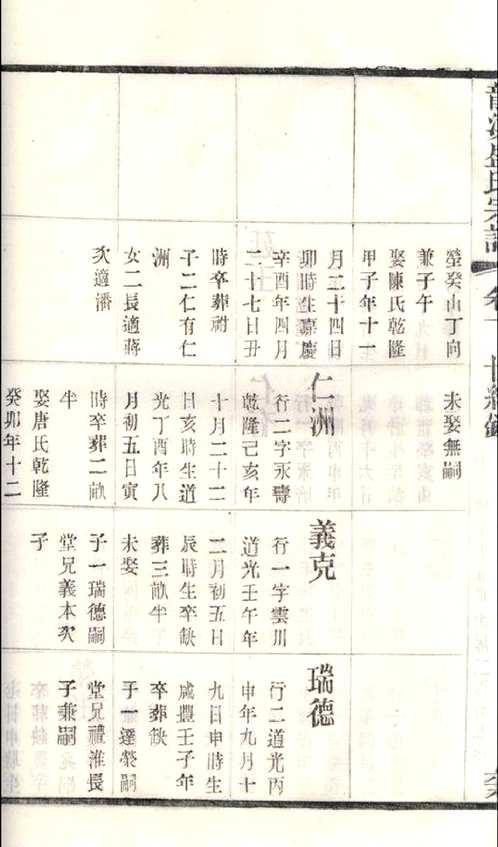 宗譜
卷
世紀錄
塋癸山丁向
兼子午
娶陳氏乾隆
甲子年十一
月二十四日
卯時生嘉慶
辛酉年四月
二十七日丑
時卒葬祔
子二仁有仁
洲
女二長適蔣
次適潘
未娶無嗣
仁洲
行二字永壽
乾隆己亥年
十月二十二
日亥時生道
光丁酉年八
月初五日寅
時卒葬二畝
半
娶唐氏乾隆
癸卯年十二
義克
行一字雲川
道光壬午年
二月初五日
辰時生卒缺
葬三畝半
未娶
子一瑞德嗣
堂兄義本次
子
瑞德
行二道光丙
申年九月十
九日申時生
咸豐壬子年
卒葬缺
子一達榮嗣
堂兄禮淮長
子兼嗣